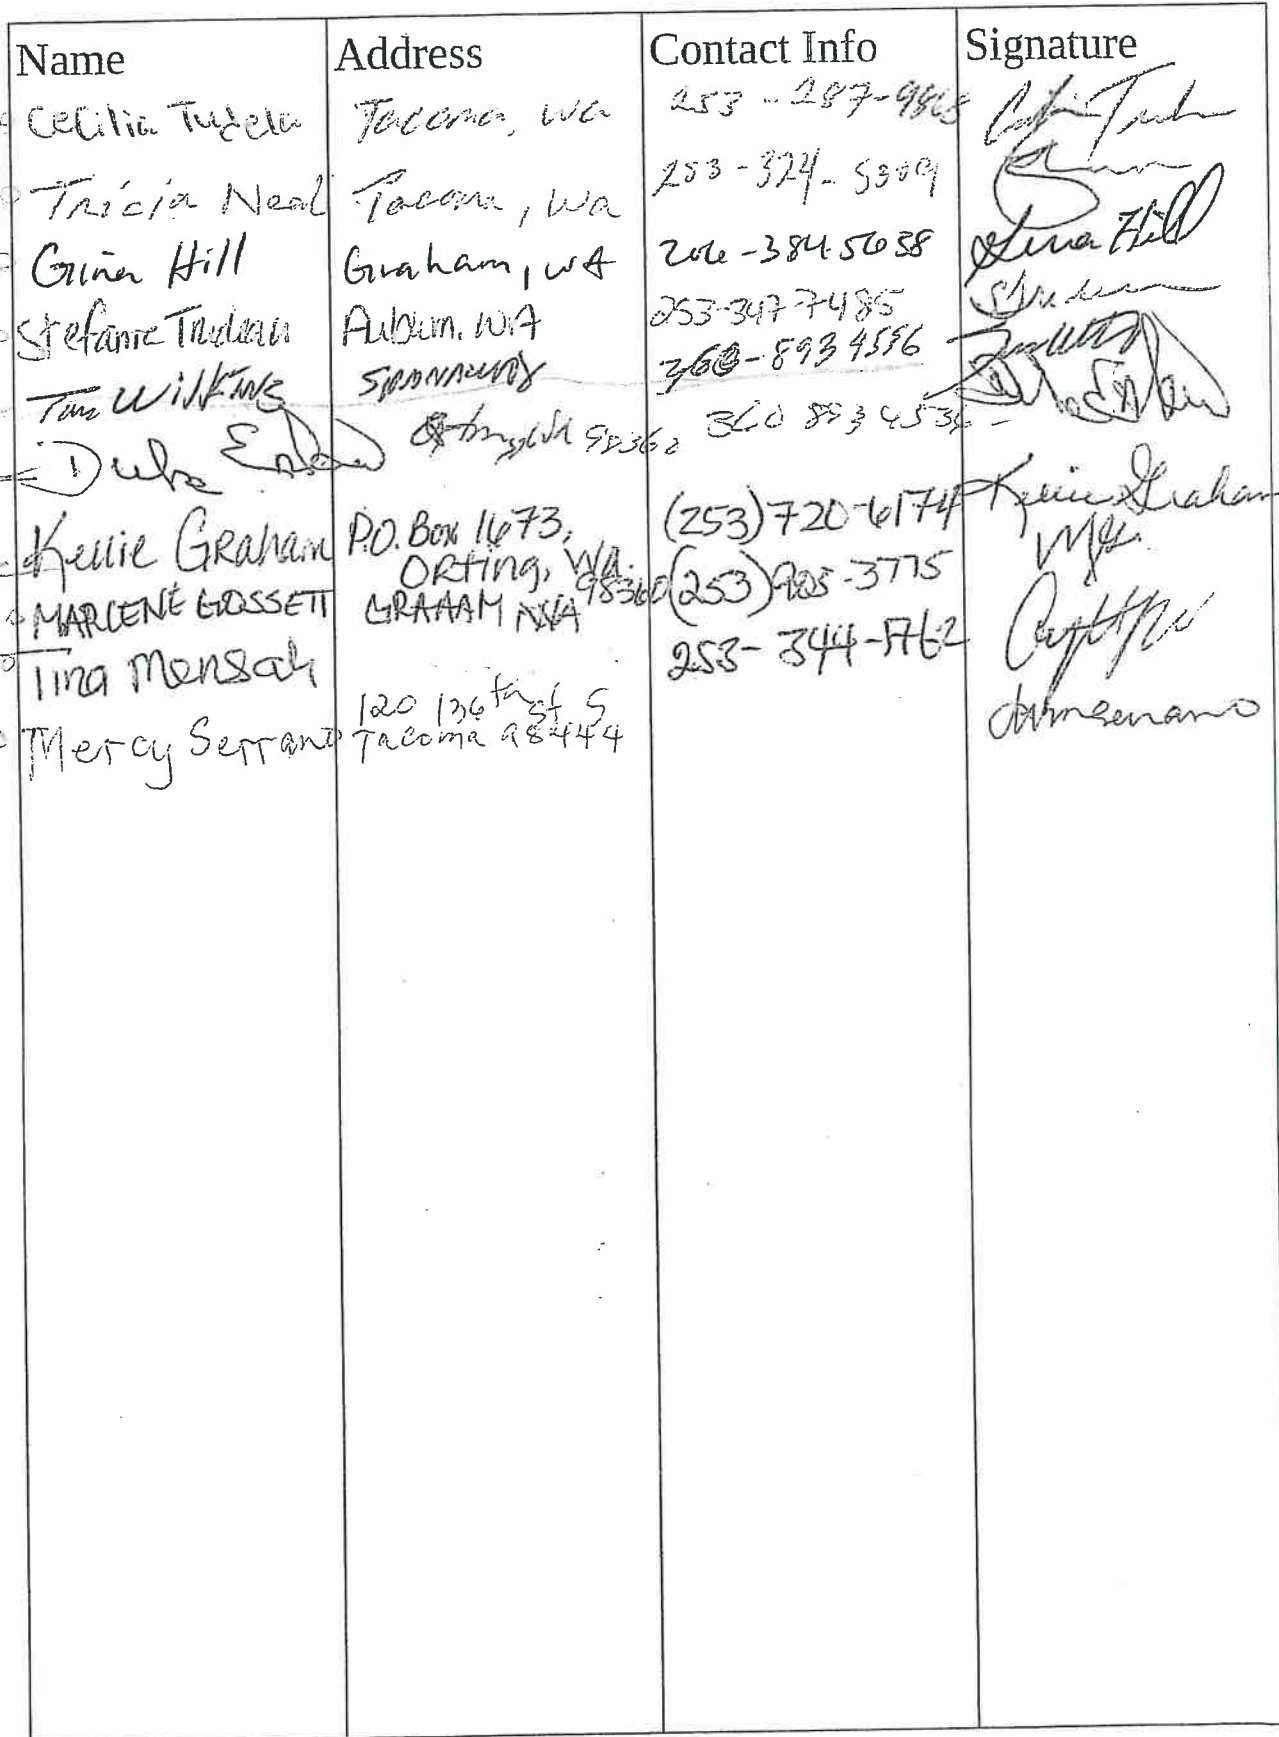 Name Address Contact Info Signature
Cecilia Tudela Tacoma, wa 253-287-9868
Tricia Neal Tacoma, Wa 253-324-5309
Gina Hill Graham, WA 206-384-5638 Gina Hill
Stefanie Trudeau Auburn, WA 253-347-7485
Tim Wilkins Spanaway 360-893 4596
Duke 98360 360 893 4536
Kellie GRAHAM P.O. Box 1673, (253)720-6174 Kellie Graham
ORting, WA. 98360
MARLENE GOSSETT GRAHAM WA (253)905-3775
Tina Mensah 253-344-1762
Mercy Serrano 120 136th st S
Tacoma 98444